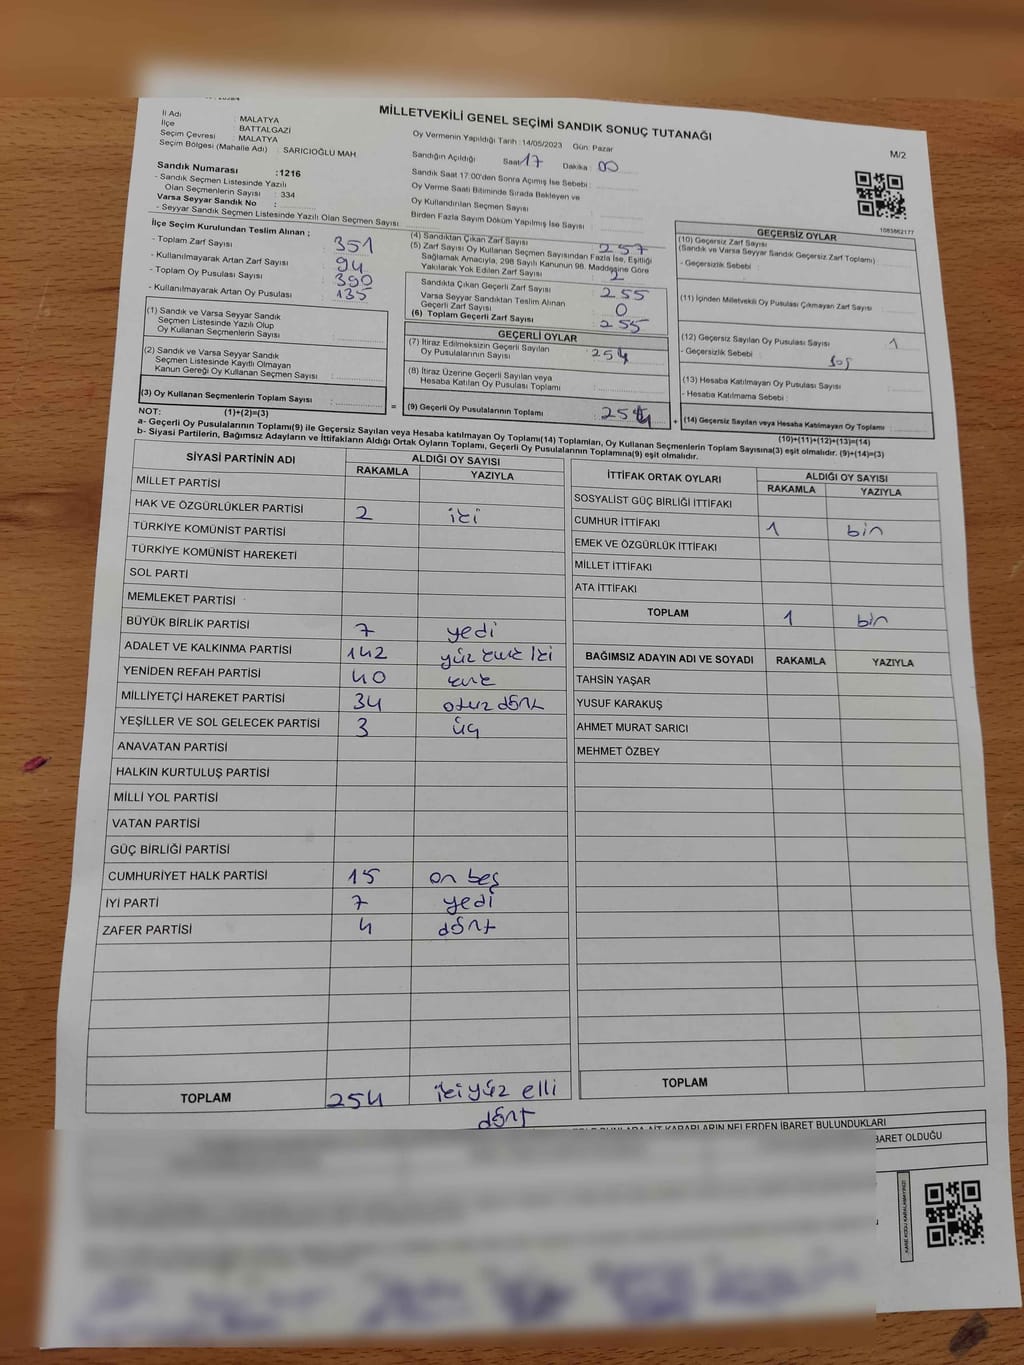 MİLLETVEKİLİ GENEL SEÇİMİ SANDIK SONUÇ TUTANAĞI
M/2
İl Adı : MALATYA
İlçe : BATTALGAZİ
Seçim Çevresi : MALATYA
Seçim Bölgesi (Mahalle Adı) : SARICIOĞLU MAH
Oy Vermenin Yapıldığı Tarih :14/05/2023 Gün: Pazar
Sandığın Açıldığı Saat 17 Dakika : 00
Sandık Saat 17:00'den Sonra Açılmış İse Sebebi :
Oy Verme Saati Bitiminde Sırada Bekleyen ve
Oy Kullandırılan Seçmen Sayısı :
Birden Fazla Sayım Döküm Yapılmış İse Sayısı :
Sandık Numarası :1216
- Sandık Seçmen Listesinde Yazılı
Olan Seçmenlerin Sayısı : 334
Varsa Seyyar Sandık No :
- Seyyar Sandık Seçmen Listesinde Yazılı Olan Seçmen Sayısı
1083862177
İlçe Seçim Kurulundan Teslim Alınan ;
- Toplam Zarf Sayısı : 351
- Kullanılmayarak Artan Zarf Sayısı : 94
- Toplam Oy Pusulası Sayısı : 390
- Kullanılmayarak Artan Oy Pusulası : 135
(1) Sandık ve Varsa Seyyar Sandık
Seçmen Listesinde Yazılı Olup
Oy Kullanan Seçmenlerin Sayısı :
(2) Sandık ve Varsa Seyyar Sandık
Seçmen Listesinde Kayıtlı Olmayan
Kanun Gereği Oy Kullanan Seçmen Sayısı :
(3) Oy Kullanan Seçmenlerin Toplam Sayısı :
(4) Sandıktan Çıkan Zarf Sayısı : 257
(5) Zarf Sayısı Oy Kullanan Seçmen Sayısından Fazla İse, Eşitliği
Sağlamak Amacıyla, 298 Sayılı Kanunun 98. Maddesine Göre
Yakılarak Yok Edilen Zarf Sayısı : 2
Sandıkta Çıkan Geçerli Zarf Sayısı : 255
Varsa Seyyar Sandıktan Teslim Alınan
Geçerli Zarf Sayısı : 0
(6) Toplam Geçerli Zarf Sayısı : 255
GEÇERLİ OYLAR
(7) İtiraz Edilmeksizin Geçerli Sayılan
Oy Pusulalarının Sayısı : 254
(8) İtiraz Üzerine Geçerli Sayılan veya
Hesaba Katılan Oy Pusulası Toplamı :
= (9) Geçerli Oy Pusulalarının Toplamı : 254 +
GEÇERSİZ OYLAR
(10) Geçersiz Zarf Sayısı
(Sandık ve Varsa Seyyar Sandık Geçersiz Zarf Toplamı) :
- Geçersizlik Sebebi :
(11) İçinden Milletvekili Oy Pusulası Çıkmayan Zarf Sayısı :
(12) Geçersiz Sayılan Oy Pusulası Sayısı : 1
- Geçersizlik Sebebi : boş
(13) Hesaba Katılmayan Oy Pusulası Sayısı :
- Hesaba Katılmama Sebebi :
(14) Geçersiz Sayılan veya Hesaba Katılmayan Oy Toplamı :
(10)+(11)+(12)+(13)=(14)
NOT: (1)+(2)=(3)
a- Geçerli Oy Pusulalarının Toplamı(9) ile Geçersiz Sayılan veya Hesaba katılmayan Oy Toplamı(14) Toplamları, Oy Kullanan Seçmenlerin Toplam Sayısına(3) eşit olmalıdır. (9)+(14)=(3)
b- Siyasi Partilerin, Bağımsız Adayların ve İttifakların Aldığı Ortak Oyların Toplamı, Geçerli Oy Pusulalarının Toplamına(9) eşit olmalıdır.
SİYASİ PARTİNİN ADI ALDIĞI OY SAYISI
RAKAMLA YAZIYLA
MİLLET PARTİSİ
HAK VE ÖZGÜRLÜKLER PARTİSİ 2 iki
TÜRKİYE KOMÜNİST PARTİSİ
TÜRKİYE KOMÜNİST HAREKETİ
SOL PARTİ
MEMLEKET PARTİSİ
BÜYÜK BİRLİK PARTİSİ 7 yedi
ADALET VE KALKINMA PARTİSİ 142 yüz kırk iki
YENİDEN REFAH PARTİSİ 40 kırk
MİLLİYETÇİ HAREKET PARTİSİ 34 otuz dört
YEŞİLLER VE SOL GELECEK PARTİSİ 3 üç
ANAVATAN PARTİSİ
HALKIN KURTULUŞ PARTİSİ
MİLLİ YOL PARTİSİ
VATAN PARTİSİ
GÜÇ BİRLİĞİ PARTİSİ
CUMHURİYET HALK PARTİSİ 15 on beş
İYİ PARTİ 7 yedi
ZAFER PARTİSİ 4 dört
TOPLAM 254 ikiyüz elli
dört
İTTİFAK ORTAK OYLARI ALDIĞI OY SAYISI
RAKAMLA YAZIYLA
SOSYALİST GÜÇ BİRLİĞİ İTTİFAKI
CUMHUR İTTİFAKI 1 bin
EMEK VE ÖZGÜRLÜK İTTİFAKI
MİLLET İTTİFAKI
ATA İTTİFAKI
TOPLAM 1 bin
BAĞIMSIZ ADAYIN ADI VE SOYADI RAKAMLA YAZIYLA
TAHSİN YAŞAR
YUSUF KARAKUŞ
AHMET MURAT SARICI
MEHMET ÖZBEY
TOPLAM
KARARLARIN NELERDEN İBARET BULUNDUKLARI
İBARET OLDUĞU